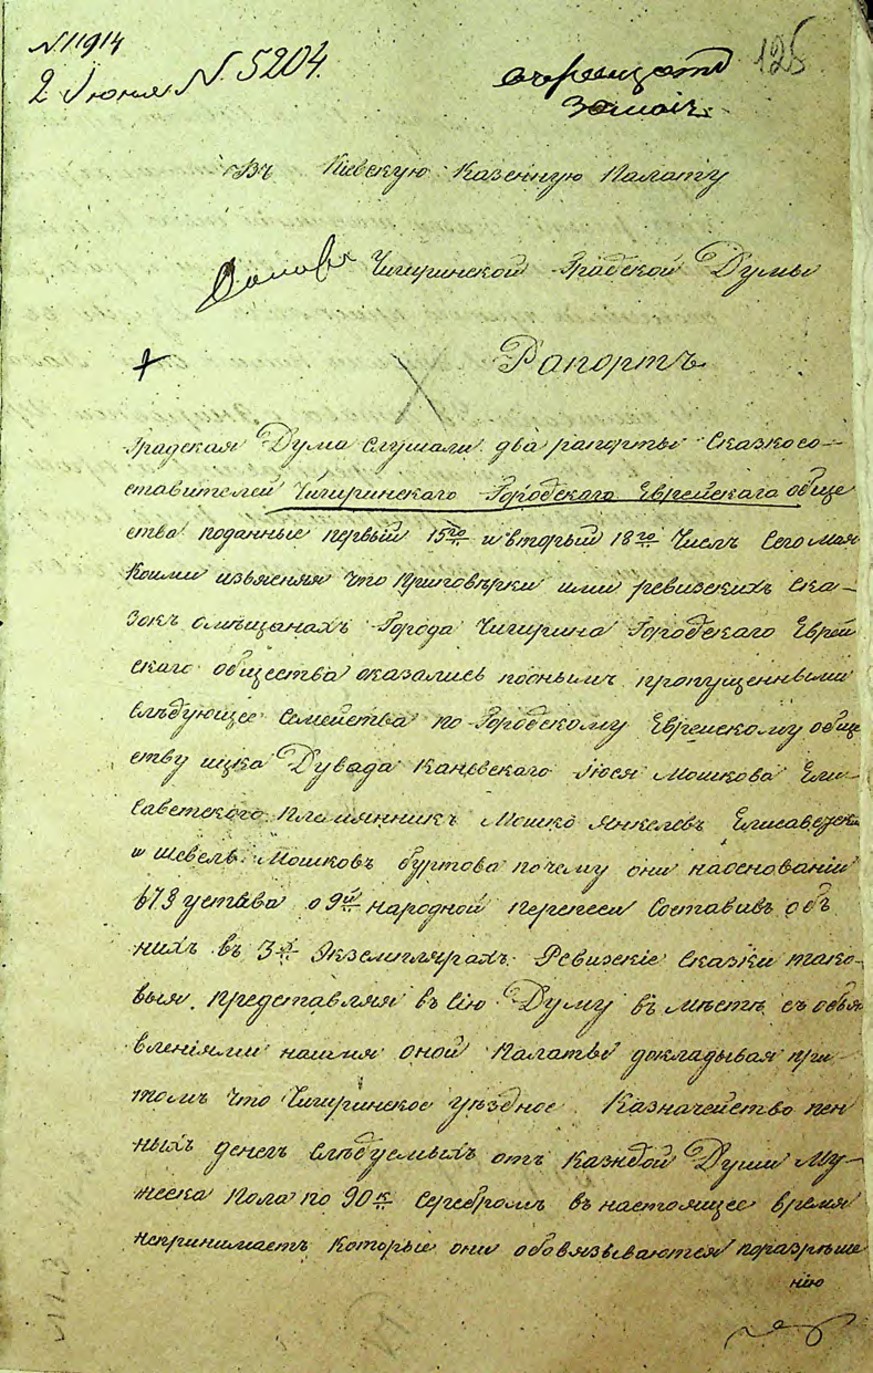 N. 11914
2 Июня N. 5204.
128
Въ Киевскую Казенную Палату
Чигиринской Градской Думы
Рапортъ
Градская Дума слушали два рапорты Сказкосо-
ставителей Чигиринскаго Городскаго Еврейскаго обще
ства поданные первый 15го и вторый 18го Числъ Сего мая
коими изьясняя что приповѣрки ими ревизскихъ ска-
зокъ омѣщанахъ Города Чигирина Городскаго Еврей
скаго общества оказались поонымъ пропущенными
слѣдующее Семейства по Городскому Еврейскому обще
ству ицка Дувида каневскаго Іося Мошкова Ели-
саветского племянникъ Мошко Янкелевъ Елисаветски
и Шевель Мошковъ буртова почему они наоснованіи
§73 устава о 9й народной переписи Составивъ объ
нихъ въ 3хъ Экземплярахъ Ревизскіе Сказки тако-
выя представляя въ Сію Думу вмѣстѣ съ объя
вленіями нашмя оной Палаты докладывая при
томъ что Чигиринское уѣздное Казначейство пен
ныхъ денегъ слѣдуемыхъ отъ каждой Души Му-
жеска Пола по 90 к Серебромъ въ настоящее время
непринимаетъ которые они обовязываются поразрѣше
нію